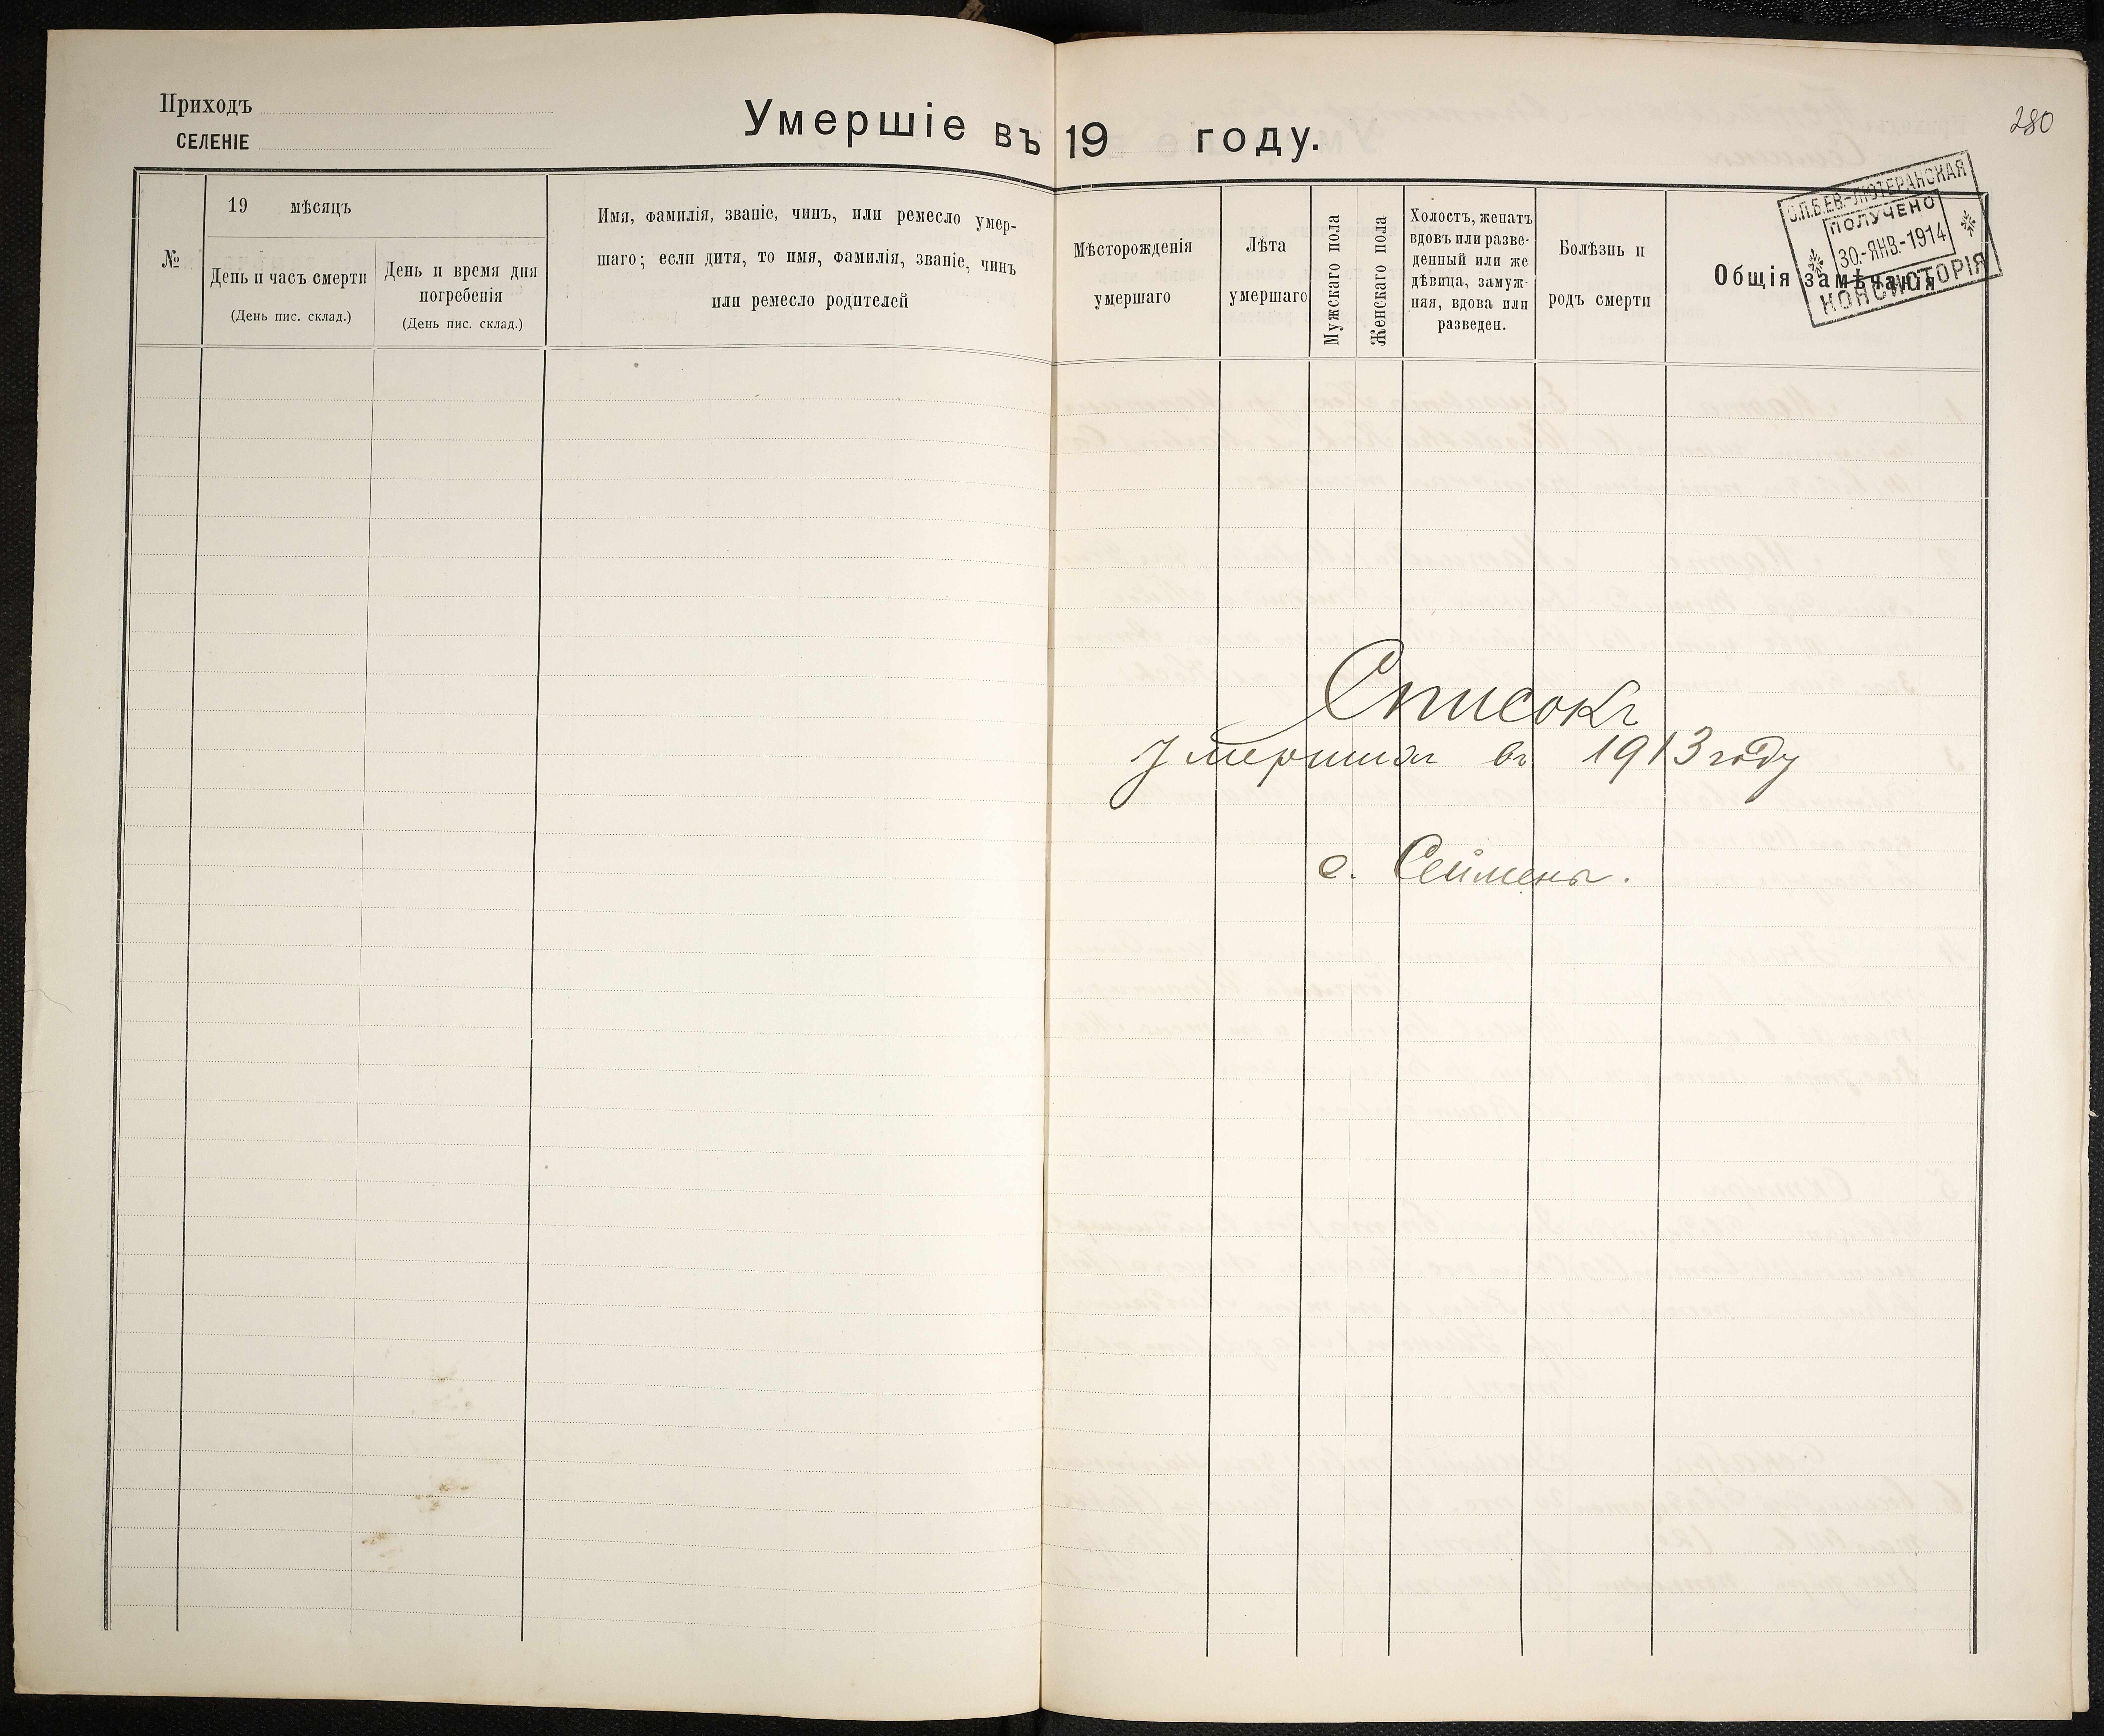 Приходъ
СЕЛЕНІЕ
Умершіе въ 19 году.
280
№
19 мѣсяцъ
День и часъ смерти
(День пис. склад.)
День и время дня
погребенія
(День пис. склад.)
Имя, фамилія, званіе, чинъ, или ремесло умер-
шаго; если дитя, то имя, фамилія, званіе, чинъ
или ремесло родителей
Мѣсторожденія
умершаго
Лѣта
умершаго
Мужскаго пола
Женскаго пола
Холостъ, женатъ
вдовъ или разве-
денный или же
дѣвица, замуж-
няя, вдова или
разведен.
Болѣзнь и
родъ смерти
Общія замѣчанія
С.П.Б.ЕВ.-ЛЮТЕРАНСКАЯ
ПОЛУЧЕНО
30.-ЯНВ.-1914
КОНСИСТОРІЯ
Списокъ
Умершихъ въ 1913 году
с. Сеймены.